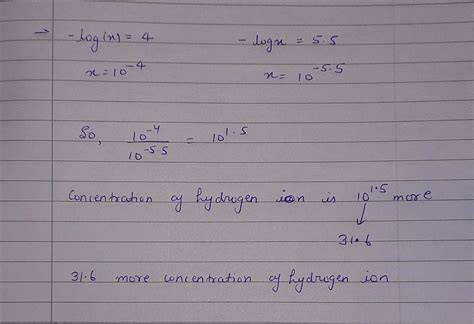 → -log(x) = 4 - logx = 5.5
x = 10^-4 x = 10^-5.5
So, 10^-4 / 10^-5.5 = 10^1.5
Concentration of hydrogen ion is 10^1.5 more
↓
31.6
31.6 more concentration of hydrogen ion